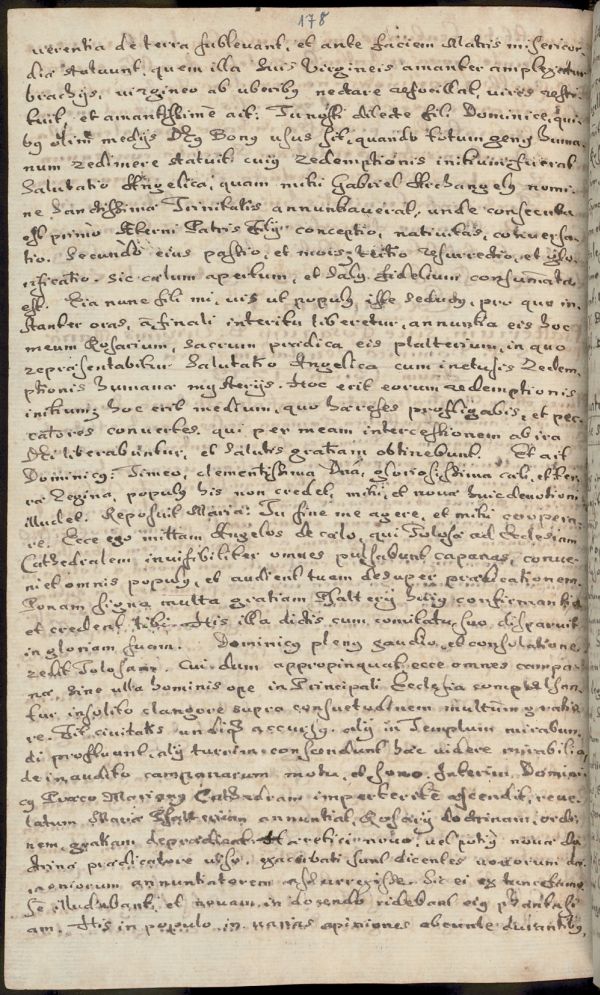 178
uerentia de terra sublevant, et ante faciem Matris misericor-
dia statuunt. quem illa suis Virgineis amanter amplexatur
brachijs, virgineo ab uberiby nectare refocillat, uires resti-
tuit, et amantissimè ait: Tu nosti dilecte fili Dominice, qui-
by olim medijs Dey Bony usus sit, quando totum geny huma-
num redimere statuit: cuiy redemptionis initium fuerat
Salutatio Angelica, quam mihi Gabriel Archangely nomi-
ne Sanctissimæ Trinitatis annuntiaverat, unde consecuta
est primo Æterni Patris Filij conceptio, nativitas, conversa-
tio. Secundò eius passio, et mors, tertiò resurrectio, et glo-
rificatio. sic cælum apertum, et saly fidelium consumata
est. Eia nunc fili mi, uis ut populy iste seducty, pro quo in-
stanter oras, à finali interitu liberetur, annuntia eis hoc
meum Rosarium, Sacrum prædica eis psalterium, in quo
repræsentabitur Salutatio Angelica cum inclusis Redem-
ptionis humanæ mysterijs. Hoc erit eorum redemptionis
initium, hoc erit medium, quo hæreses profligabis, et pec-
catores convertes, qui per meam intercessionem ab ira
Dei liberabuntur, et salutis gratiam obtinebunt. Et ait
Dominicy: Timeo, clementissima Dna, gloriosissima cæli, et ter-
ræ Regina, populy his non credet, mihi, et novæ huic devotioni
illudet. Reposuit Maria: Tu sine me agere, et mihi coopera-
re. Ecce ego mittam Angelos de cælo, qui Tolosæ ad Ecclesiam
Cathedralem invisibiliter omnes pulsabunt capanas, conve-
niet omnis populy, et audient tuam desuper prædicationem.
Ponam signa multa gratiam Psalterij huiy confirmantia
et credent tibi. His illa dictis cum comitatu suo disparuit
in gloriam suam. Dominicy pleny gaudio, et consolatione
redit Tolosam. Cui dum appropinquat, ecce omnes campa-
næ sine ulla hominis ope in Principali Ecclesia compulsan-
tur, insolito clangore supra consuetudinem multùm
re. Fit civitatis undiq3 accursy. alij in Templum mirabun-
di profluunt, alij turrim conscendunt hæc videre mirabilia
de inaudito campanarum motu, et sono. Interim Domini-
cy Præco Mariany Cathedram imperterritè ascendit, reve-
latum Maria Psalterium annuntiat, Rosarij doctrinam, ordi-
nem, gratiam deprædicat. Hæretici novo, uel potiy nova do-
ctrina prædicatore viso, exacerbati sunt dicentes novorum dæ-
moniorum annuntiatorem
se illudebant, et novam in docendo ridebant eiy
am. His in populo in varias opiniones abeunte